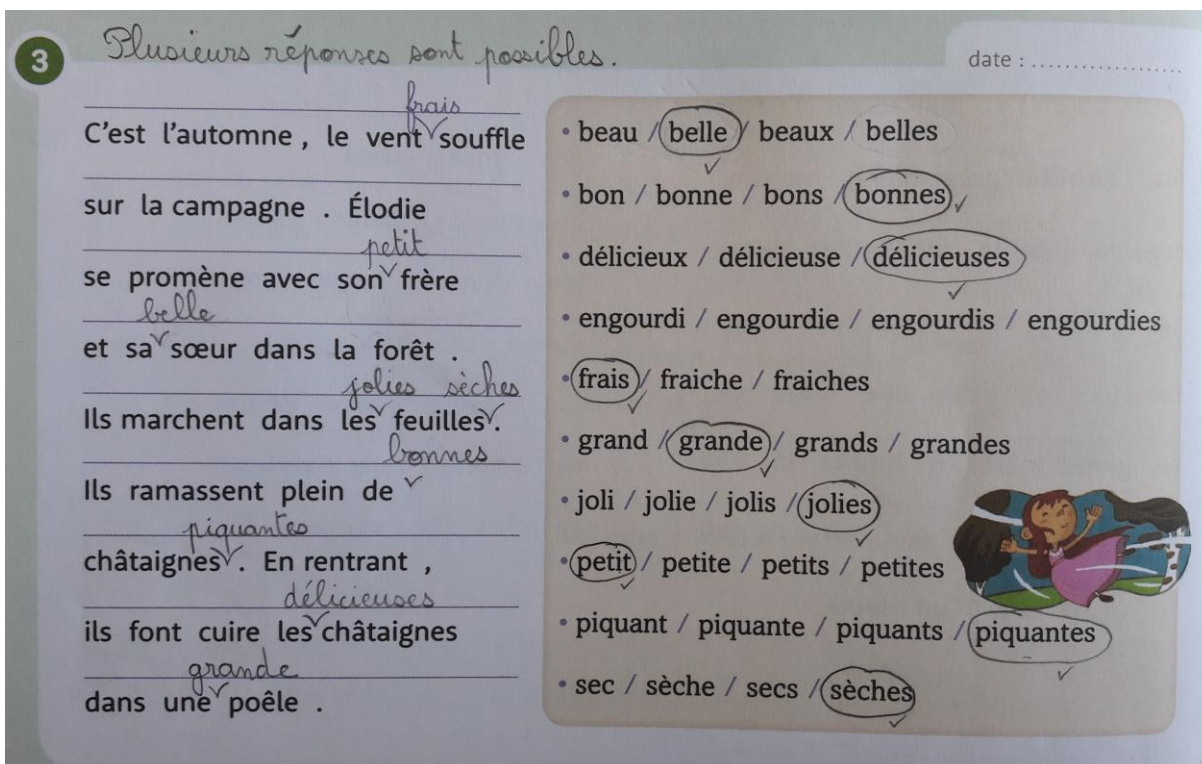 3 Plusieurs réponses sont possibles.
date : ....................
frais
C'est l'automne , le vent souffle
sur la campagne . Élodie
petit
se promène avec son frère
belle
et sa sœur dans la forêt .
jolies sèches
Ils marchent dans les feuilles .
bonnes
Ils ramassent plein de
piquantes
châtaignes . En rentrant ,
délicieuses
ils font cuire les châtaignes
grande
dans une poêle .
• beau / belle / beaux / belles
• bon / bonne / bons / bonnes
• délicieux / délicieuse / délicieuses
• engourdi / engourdie / engourdis / engourdies
• frais / fraiche / fraiches
• grand / grande / grands / grandes
• joli / jolie / jolis / jolies
• petit / petite / petits / petites
• piquant / piquante / piquants / piquantes
• sec / sèche / secs / sèches